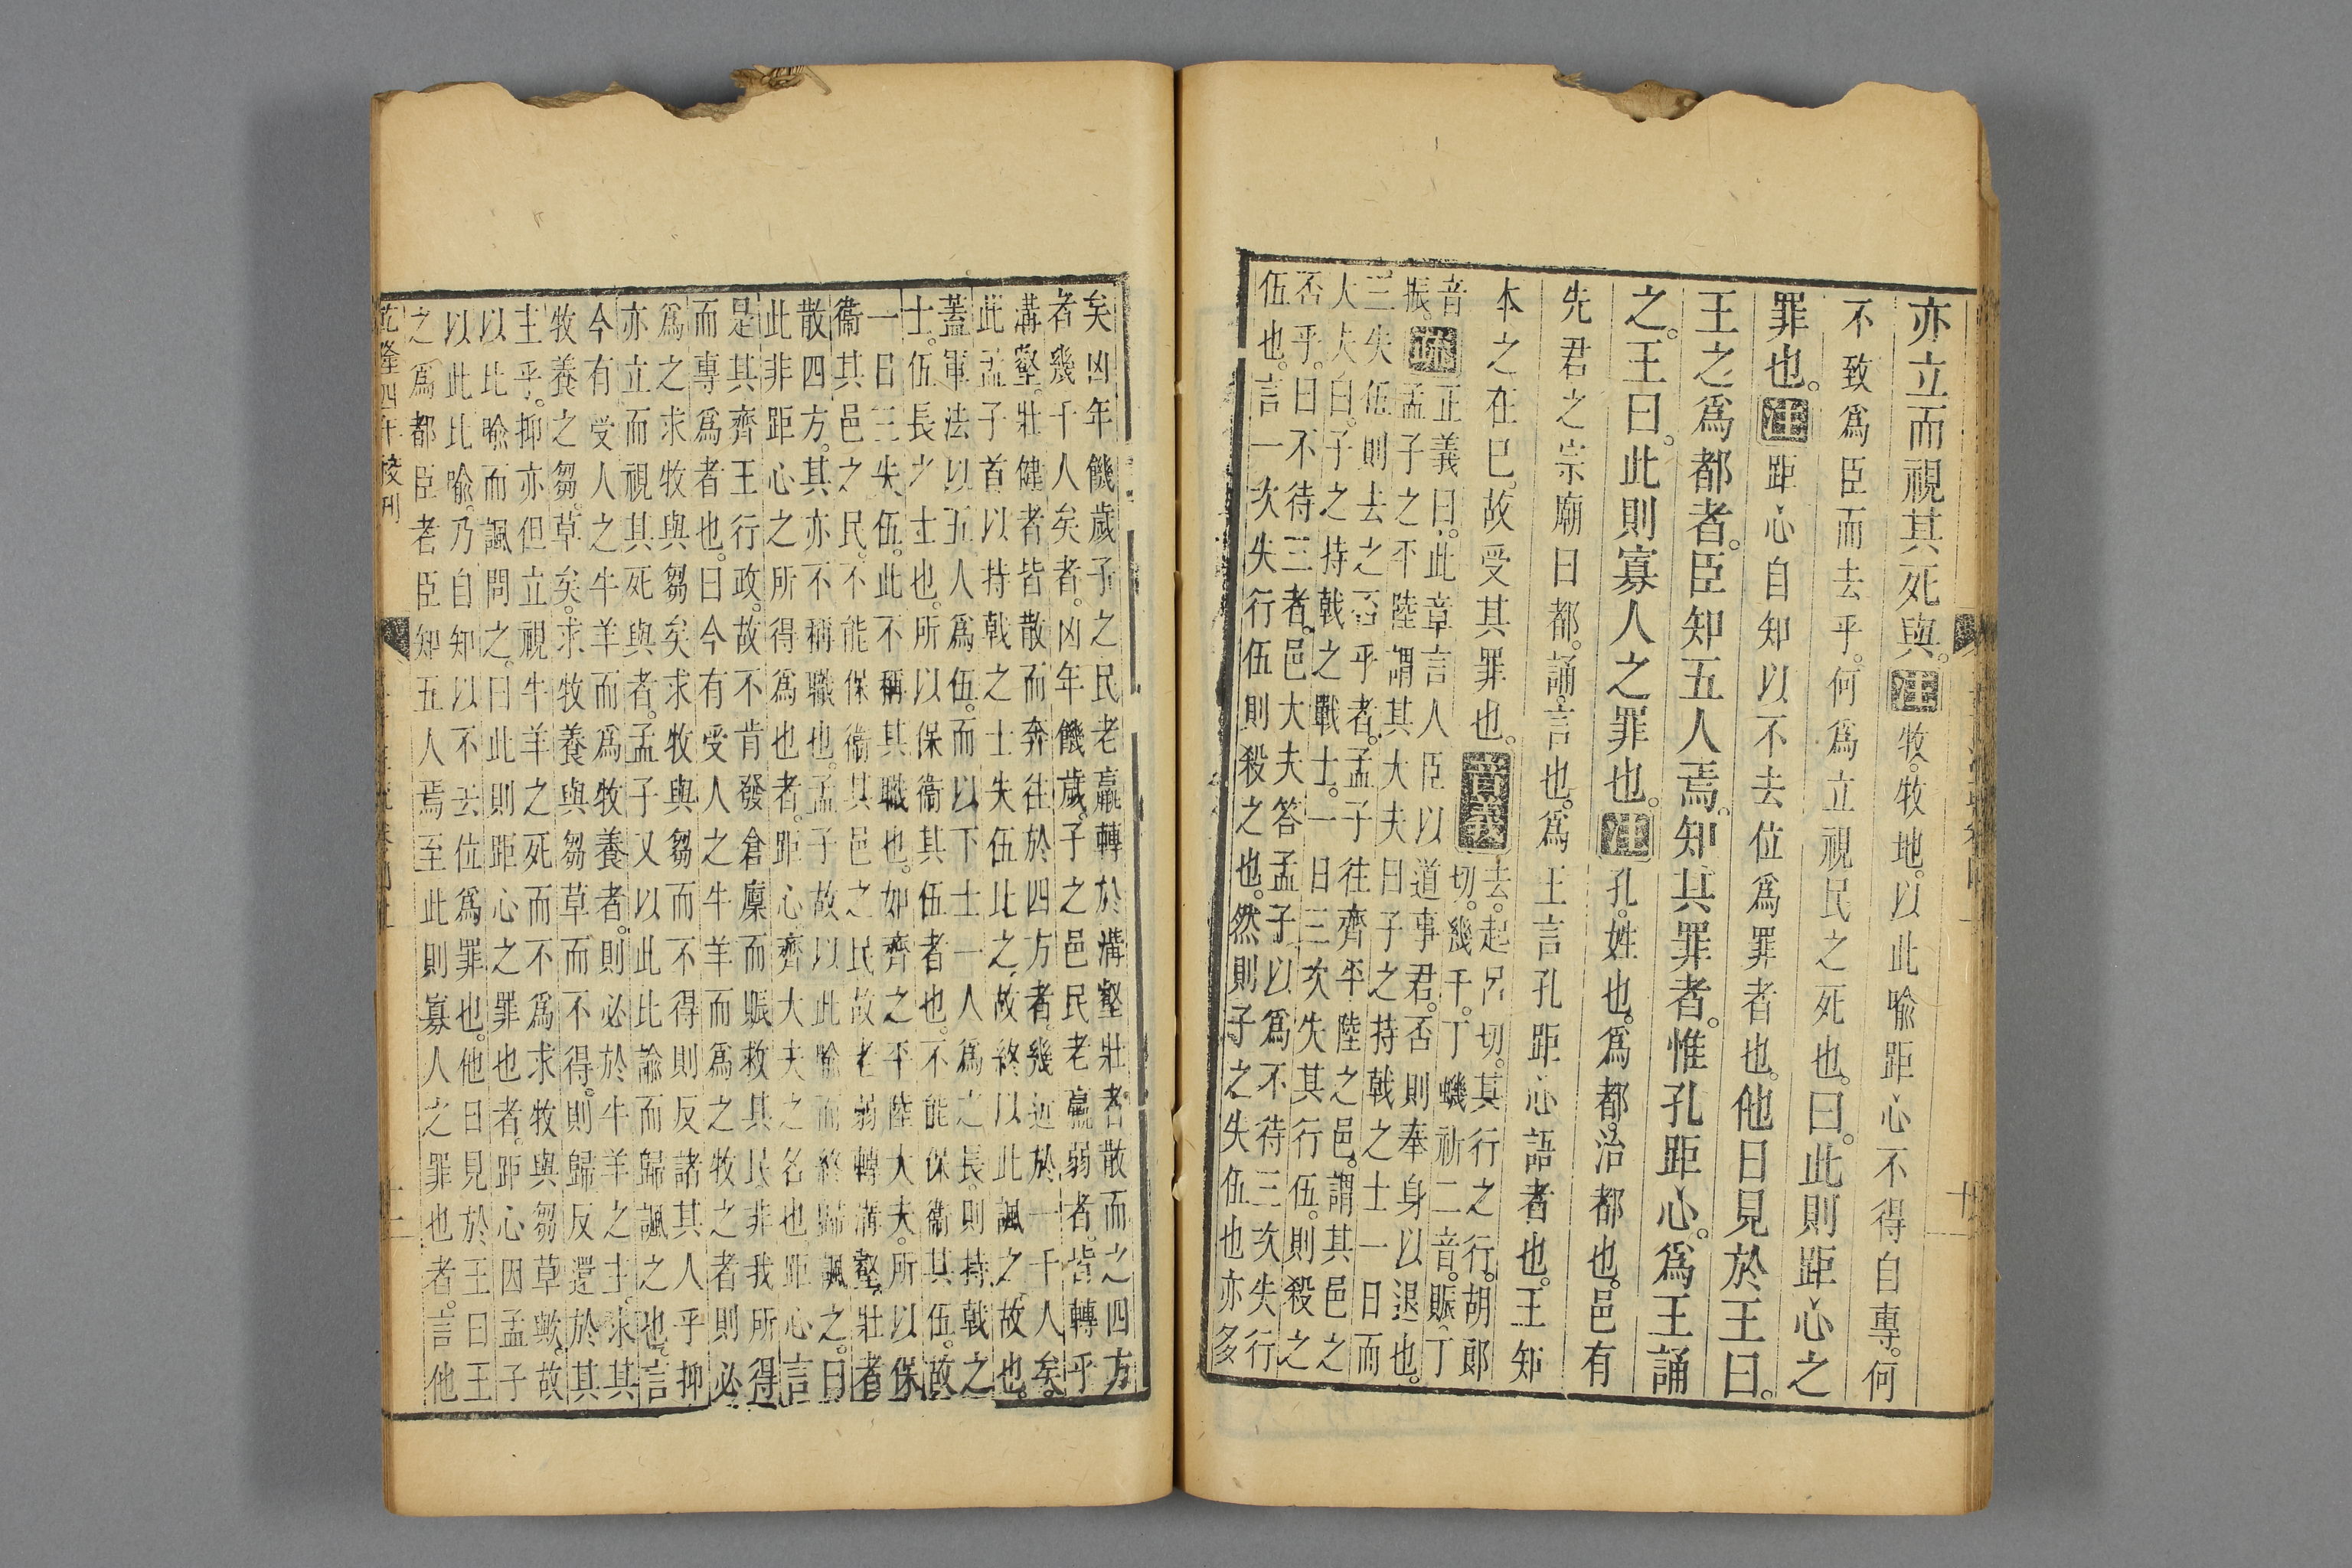 亦立而視其死與。注牧。牧地。以此喻距心不得自專。何
不致爲臣而去乎。何爲立視民之死也。曰。此則距心之
罪也。注距心自知以不去位爲罪者也。他日見於王曰。
王之爲都者。臣知五人焉。知其罪者。惟孔距心。爲王誦
之。王曰。此則寡人之罪也。注孔。姓也。爲都。治都也。邑有
先君之宗廟曰都。誦。言也。爲王言孔距心語者也。王知
本之在巳。故受其罪也。音義去。起呂切。其行之行。胡郎
切。幾千。丁蟣祈二音。賑。丁
音振。疏正義曰。此章言人臣以道事君。否則奉身以退也。
孟子之平陸謂其大夫曰子之持戟之士一日而
三失伍則去之否乎者。孟子往齊平陸之邑。謂其邑之
大夫曰。子之持戟之戰士。一日三次失其行伍。則殺之
否乎。曰不待三者。邑大夫答孟子以爲不待三次失行
伍也。言一次失行伍則殺之也。然則子之失伍也亦多
矣凶年饑歲子之民老羸轉於溝壑壯者散而之四方
者幾千人矣者。凶年饑歲。子之邑民老羸弱者。皆轉乎
溝壑。壯健者皆散而奔往於四方者。幾近於一千人矣。
此孟子首以持戟之士失伍比之。故終以此諷之。故也。
蓋軍法以五人爲伍。而以下士一人爲之長。則持戟之
士。伍長之士也。所以保衞其伍者也。不能保衞其伍。故
一日三失伍。此不稱其職也。如齊之平陸大夫。所以保
衞其邑之民。不能保衞其邑之民故老弱轉溝壑。壯者
散四方。其亦不稱職也。孟子故以此喻而終歸諷之。曰
此非距心之所得爲也者。距心齊大夫之名也距心言
是其齊王行政。故不肯發倉廩而賑救其民非我所得
而專爲者也。曰今有受人之牛羊而爲之牧之者則必
爲之求牧與芻矣求牧與芻而不得則反諸其人乎抑
亦立而視其死與者。孟子又以此比諭而歸諷之也。言
今有受人之牛羊而爲牧養者。則必於牛羊之主。求其
牧養之芻草矣。求牧養與芻草而不得。則歸反還於其
主乎。抑亦但立視牛羊之死而不爲求牧與芻草歟。故
以比喻而諷問之。曰此則距心之罪也者。距心因孟子
以此比喻。乃自知以不去位爲罪也。他日見於王曰王
之爲都臣者臣知五人焉至此則寡人之罪也者。言他
乾隆四年校刊